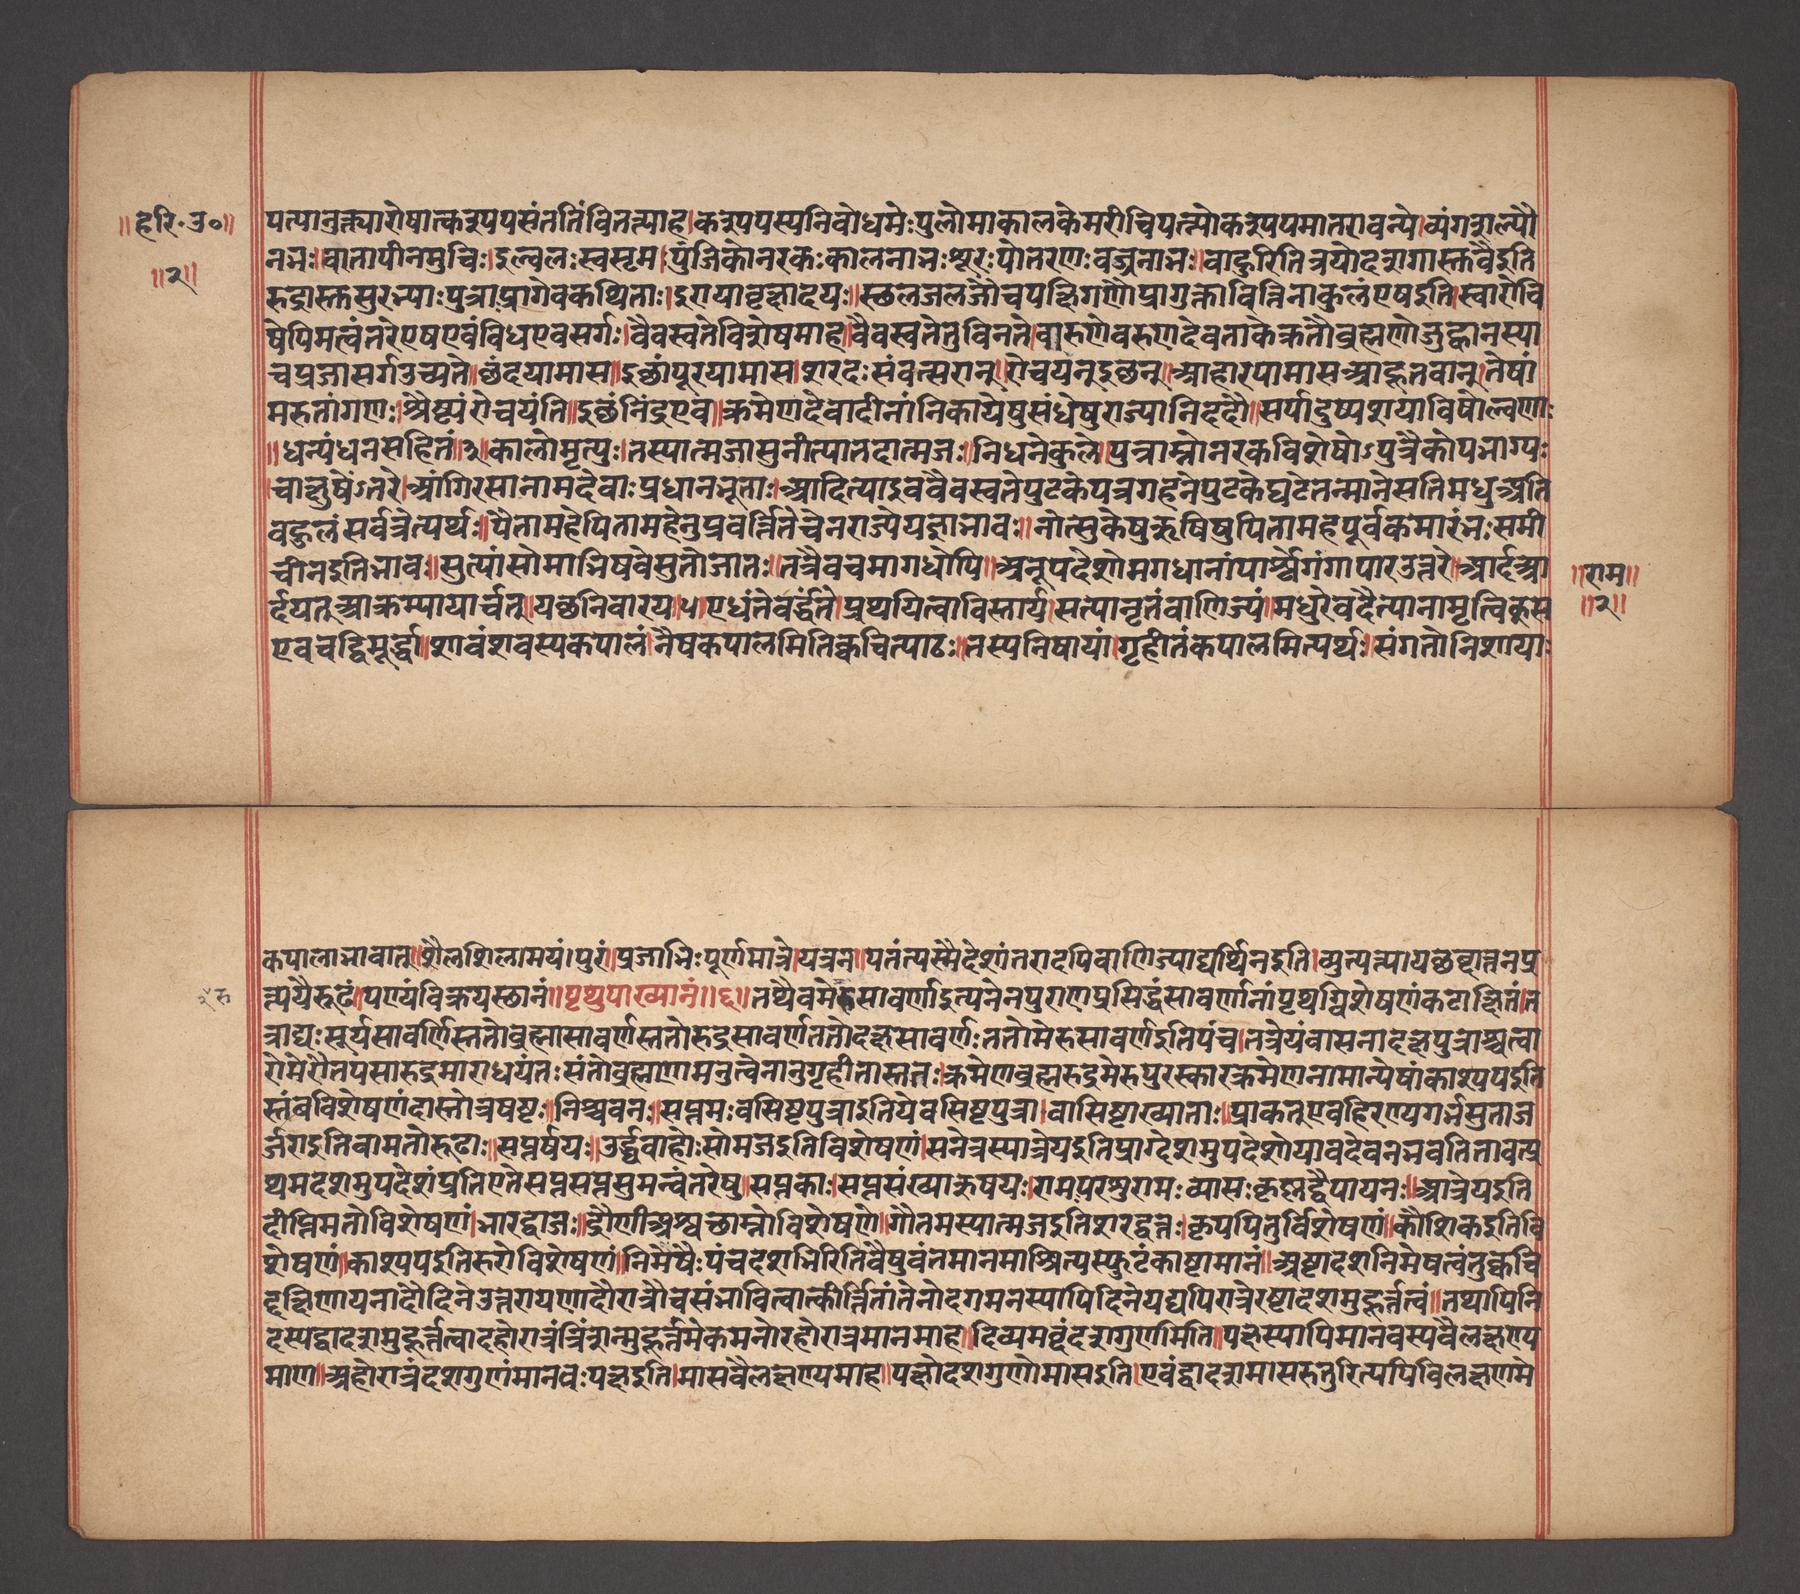 ॥हरि॰उ०॥
॥२॥
पत्यानुक्त्यारोषात्कश्यपसंततिंवितत्याह।कश्यपस्यनिबोधमे॰पुलोमाकालकेमरीचिपत्न्योकश्यपमातरावन्ये।व्यंगशल्यौ
नभः।वातापीनमुचिः।इल्वलःस्वसृम।पुंजिकोनरकःकालनाभःशूरःपोतरणःवज्रनाभः॥बाहुरितित्रयोदशगास्तवैइति
रुद्रास्तसुरभ्याःपुत्राप्रागेवकथिताः।इरायावृक्षादयः॥स्थलजलजौचपक्षिगणौप्रागुक्तोविभिनाकुलंएषइति।स्वारोचि
षेपिमत्वंतरेएषएवंविधएवसर्गः।वैवस्वतेविशेषमाह॥वैवस्वतेतुविनते।वारुणेवरुणदेवताकेक्रतौब्रह्मणोजुह्वानस्या
चप्रजासर्गउच्यते॥छंदयामास॥इछांपूरयामास।शरदःसंवत्सरान्।रोचयनइछन्॥आहारयामासआहृतवान्।तेषां
मरुतांगणः।श्रैष्ट्यंरोचयंति॥इछंनिंद्रएव॥क्रमेणदेवादीनांनिकायेषुसंघेषुराज्यानिददौ॥सर्पादुष्पशयाविषोल्वणाः
॥धन्यंधनसहितं॥३॥कालोमृत्युः।तस्यात्मजासुनीत्यातदात्मजः॥निधनेकुले।पुन्नाम्नोनरकविशेषोऽपुत्रैकोपभाग्यः
चाक्षुषेंऽतरे।आंगिरसानामदेवाःप्रधानभूताः॥आदित्याइववैवस्वतेपुटकेपत्रगहनेपुटकेघटेतन्मानेसतिमधुअति
बहुलंसर्वत्रेत्यर्थः॥पैतामहेपितामहेनुप्रवर्त्तितेचेनराज्येयज्ञाभावः॥नोत्सुकेषुऋषिषुपितामहपूर्वकमारंभःसमी
चीनइतिभावः॥सुत्यांसोमाभिषवेसुतोजातः॥तत्रैवचमागधोपि॥अनूपदेशोमगधानांपार्श्वेगंगापारउत्तरे॥आर्दआ
र्दयत्आक्रम्यायार्चत्।यछनिवारय।५।एधंतेवर्द्धंते।प्रथयित्वाविस्तार्य।सत्यानृतंवाणिज्यं।मधुरेवदैत्यानामृत्विक्स
एवचद्विमूर्द्धा॥शावंशवस्यकपालं।नैषकपालमितिक्वचित्पाठः॥तस्यनिषायां।गृहीतंकपालमित्यर्थः।संगतोनिशायाः
॥राम॥
॥२॥
कपालाभावात्॥शैलशिलामयं।पुरं।प्रजाभिःपूर्णमात्रे।यत्रन।पतंत्यस्मैदेशांतरादपिवाणिज्याद्यर्थिनइति।व्युत्पत्त्यायछब्दात्तनप्र
त्ययैरूढं।पण्यंविक्रयस्थानं॥पृथुपाख्यानं॥६॥तथैवमेरुसावर्णाइत्यनेनपुराणप्रसिद्धंसावर्णानांपृथग्विशेषणंकटाक्षितं।त
त्राद्यःसूर्यसावर्णिस्ततोब्रह्मासावर्णस्ततोरुद्रसावर्णततोदक्षसावर्णःततोमेरुसावर्णइतिपंच।तत्रेयंवासनादक्षपुत्राश्चत्वा
रोमेरौतपसारुद्रमाराधयंतःसंतोब्रह्मणामनुत्वेनानुगृहीतास्ततः।क्रमेणब्रह्मरुद्रमेरुपुरस्कारक्रमेणनामान्येषांकाश्यपइति
स्तंबविशेषणंदास्तोत्रषष्टः॥निश्च्यवनः॥सप्तमःवसिष्ठपुत्राइतियेवसिष्ठपुत्रा।वासिष्ठाख्याताः॥प्राकतुएवहिरण्यगर्भसुताऊ
र्जराइतिवामतोरुढाः॥सप्तर्षयः॥उर्द्ध्वबाहोःसोमजइतिविशेषणं।सनेत्रस्यात्रेयइतिप्राग्देशमुपदेशोयावदेवनभवतितावत्प्र
थमदशमुपदेशंप्रतिएतेसप्तसप्तसुमन्वंतरेषु॥सप्तकाः।सप्तसंख्याऋषयः।रामःपरशुरामःव्यासःकृष्णद्वैपायनः॥आत्रेयइति
दीप्तिमतोविशेषणं।भारद्वाजः॥द्रौणीअश्वत्थाम्नोविशेषणे॥गौतमस्यात्मजइतिशरद्वतः।कृपपितुर्विशेषणं।कौशिकइतिवि
शेषणं।काश्यपइतिरुरोविशेषणं॥निमेषैःपंचदशभिरितिवैषुवंतमानमाश्रित्यस्फुटंकाष्टामानं॥अष्टादशनिमेषत्वंतुक्वचि
द्दक्षिणायनादौदिनेउत्तरायणादौरात्रौचसंभावित्वात्कीर्त्तितांतेनोदगमनस्यापिदिनेयद्यपिरात्रेरष्टादशमुहूर्त्तत्वं॥तथापिनि
दस्यद्वादशमुहूर्त्तत्वादहोरात्रंत्रिंशन्मुहूर्त्तमेकमनोरहोरात्रमानमाह॥दिव्यमब्दंदशगुणमिति॥पक्षस्यापिमानवस्यवैलक्षण्य
माण॥अहोरात्रंदशगुणंमानवःपक्षइति।मासवैलक्षण्यमाह।पक्षोदशगुणोमासइति।एवंद्वादशमासऋतुरित्यपिविलक्षणमे